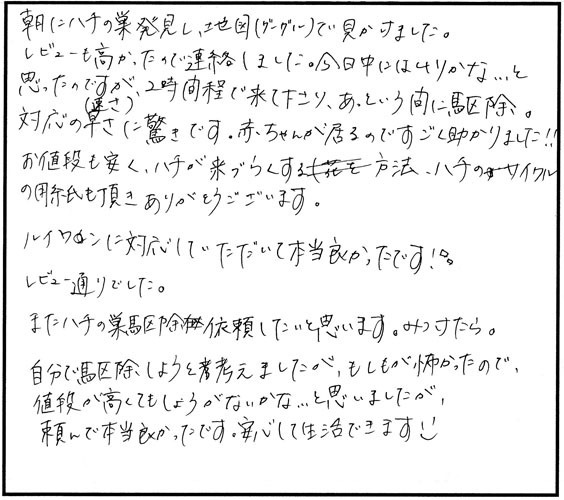 朝にハチの巣発見し、地図(グーグル)で見かけました。
レビューも高かったので連絡しました。今日中にはムリかな…と
思ったのですが、2時間程で来て下さり、あっという間に駆除。
対応の早さ(速さ)に驚きです。赤ちゃんが居るのですごく助かりました!!
お値段も安く、ハチが来づらくする方法、ハチのサイクル
の用紙も頂きありがとうございます。
に対応していただいて本当良かったです!
レビュー通りでした。
またハチの巣駆除依頼したいと思います。みつけたら。
自分で駆除しようと考えましたが、もしもが怖かったので、
値段が高くてもしょうがないかな…と思いましたが、
頼んで本当良かったです。安心して生活できます!